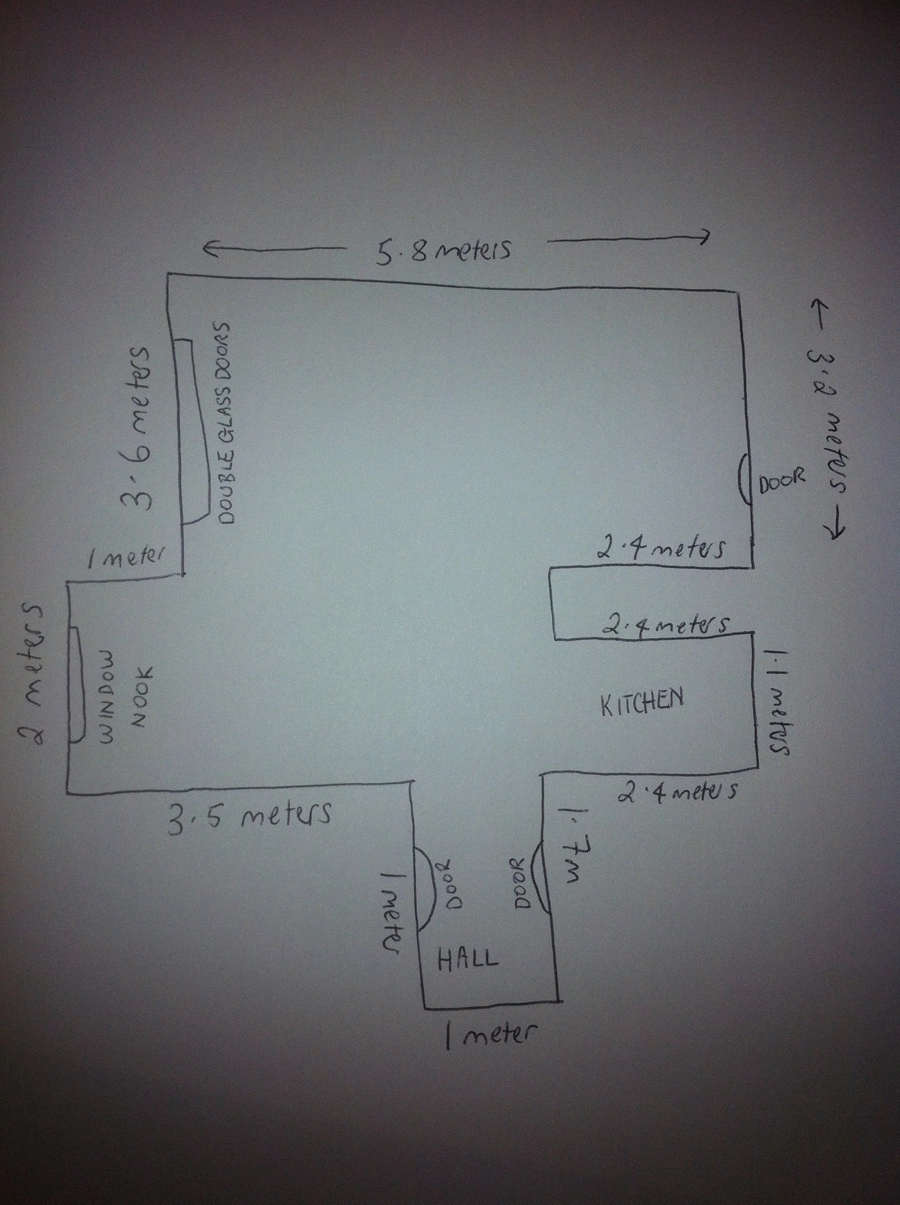 5.8 meters
3.2 meters
3.6 meters
DOUBLE GLASS DOORS
DOOR
1 meter
2.4 meters
2.4 meters
2 meters
WINDOW
NOOK
KITCHEN
1.1 meters
2.4 meters
3.5 meters
1.7m
1 meter
DOOR
DOOR
HALL
1 meter